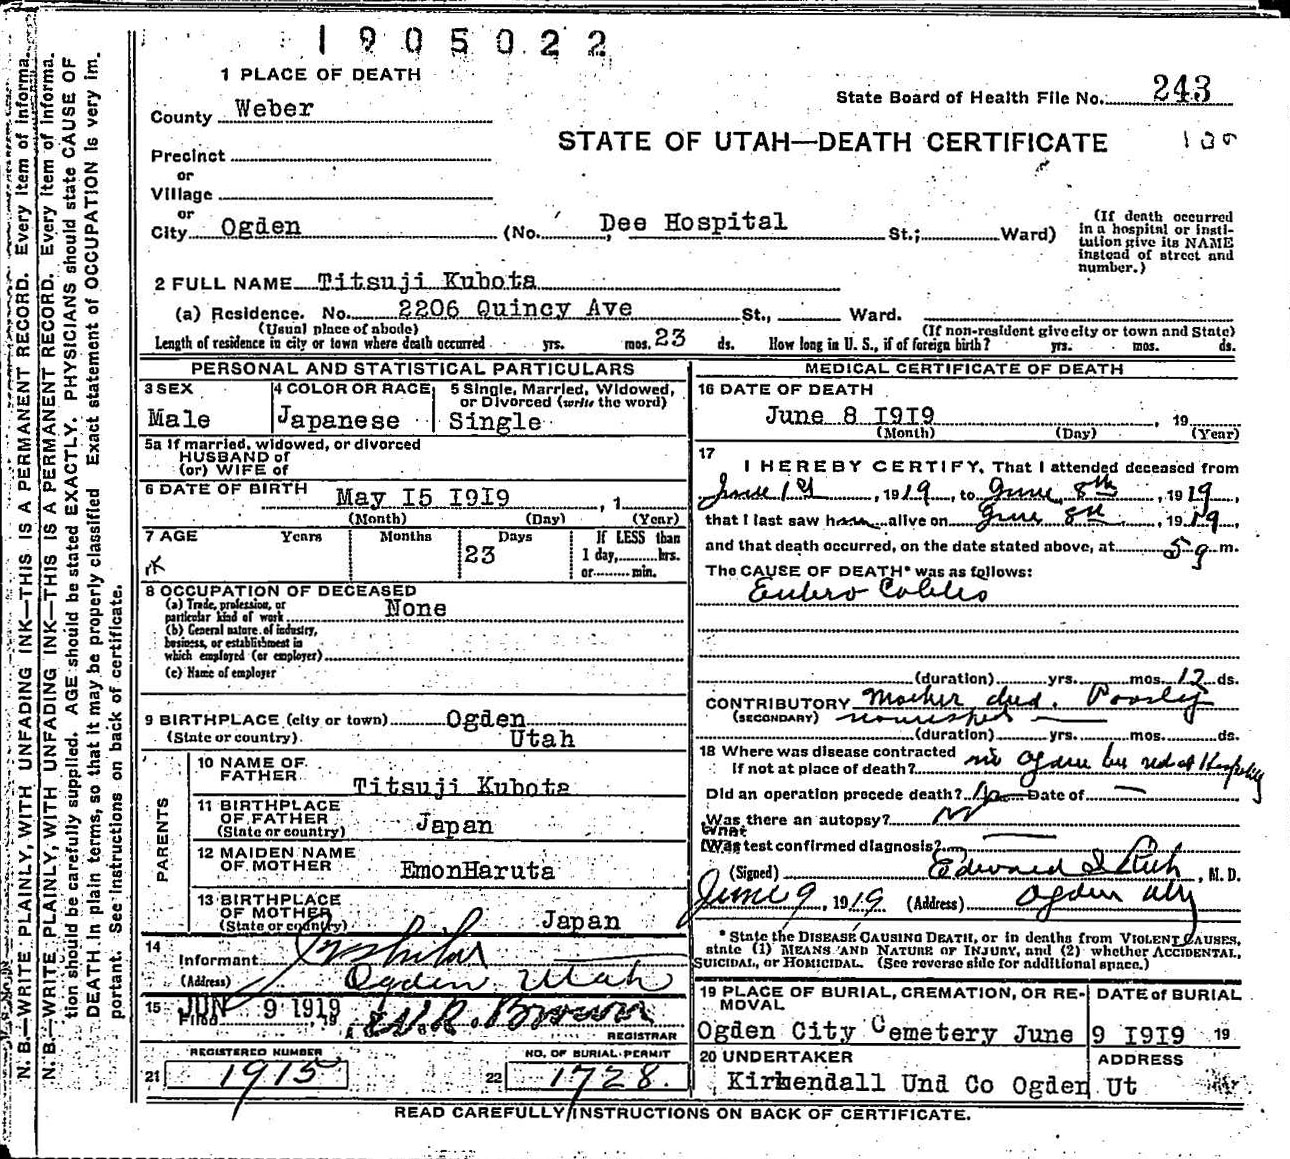 1905022
1 PLACE OF DEATH
State Board of Health File No. 243
County Weber
STATE OF UTAH—DEATH CERTIFICATE
Precinct
or
Village
or
City Ogden (No. Dee Hospital St.; Ward)
(If death occurred
in a hospital or insti-
tution give its NAME
instead of street and
number.)
2 FULL NAME Titsuji Kubota
(a) Residence. No. 2206 Quincy Ave St., Ward.
(Usual place of abode) (If non-resident give city or town and State)
Length of residence in city or town where death occurred yrs. mos. 23 ds. How long in U. S., if of foreign birth? yrs. mos. ds.
PERSONAL AND STATISTICAL PARTICULARS
3 SEX
Male
4 COLOR OR RACE
Japanese
5 Single, Married, Widowed,
or Divorced (write the word)
Single
5a If married, widowed, or divorced
HUSBAND of
(or) WIFE of
6 DATE OF BIRTH May I5 I9I9 , 1
(Month) (Day) (Year)
7 AGE Years Months Days If LESS than
23 1 day, hrs.
or min.
8 OCCUPATION OF DECEASED
(a) Trade, profession, or
particular kind of work None
(b) General nature of industry,
business, or establishment in
which employed (or employer)
(c) Name of employer
9 BIRTHPLACE (city or town) Ogden
(State or country) Utah
PARENTS
10 NAME OF
FATHER Titsuji Kubota
11 BIRTHPLACE
OF FATHER Japan
(State or country)
12 MAIDEN NAME
OF MOTHER EmonHaruta
13 BIRTHPLACE
OF MOTHER
(State or country) Japan
14
Informant
(Address) Ogden, Utah
15 JUN 9 1919
Filed , 19 Brown
REGISTRAR
REGISTERED NUMBER NO. OF BURIAL PERMIT
21 1915 22 1728.
MEDICAL CERTIFICATE OF DEATH
16 DATE OF DEATH
June 8 I9I9 , 19
(Month) (Day) (Year)
17
I HEREBY CERTIFY, That I attended deceased from
June 1st , 1919, to June 8th , 1919,
that I last saw him alive on June 8th , 1919,
and that death occurred, on the date stated above, at 5 a m.
The CAUSE OF DEATH* was as follows:
Entero Colitis
(duration) yrs. mos. 12 ds.
CONTRIBUTORY Mother died. Poorly
(SECONDARY) nourished
(duration) yrs. mos. ds.
18 Where was disease contracted
If not at place of death? in Ogden but not at Hospital
Did an operation precede death? No Date of —
Was there an autopsy? No
What
(Was test confirmed diagnosis?
(Signed) Edward I Rich , M. D.
June 9, 1919 (Address) Ogden Utg
* State the DISEASE CAUSING DEATH, or in deaths from VIOLENT CAUSES,
state (1) MEANS AND NATURE OF INJURY, and (2) whether ACCIDENTAL,
SUICIDAL, or HOMICIDAL. (See reverse side for additional space.)
19 PLACE OF BURIAL, CREMATION, OR RE-
MOVAL
DATE of BURIAL
Ogden City Cemetery June 9 I9I9 19
20 UNDERTAKER ADDRESS
Kirkendall Und Co Ogden Ut
READ CAREFULLY INSTRUCTIONS ON BACK OF CERTIFICATE.
N. B.—WRITE PLAINLY, WITH UNFADING INK—THIS IS A PERMANENT RECORD. Every item of informa.
N. B.—WRITE PLAINLY, WITH UNFADING INK—THIS IS A PERMANENT RECORD. Every item of informa.
tion should be carefully supplied. AGE should be stated EXACTLY. PHYSICIANS should state CAUSE OF
DEATH in plain terms, so that it may be properly classified Exact statement of OCCUPATION is very im.
portant. See instructions on back of certificate.